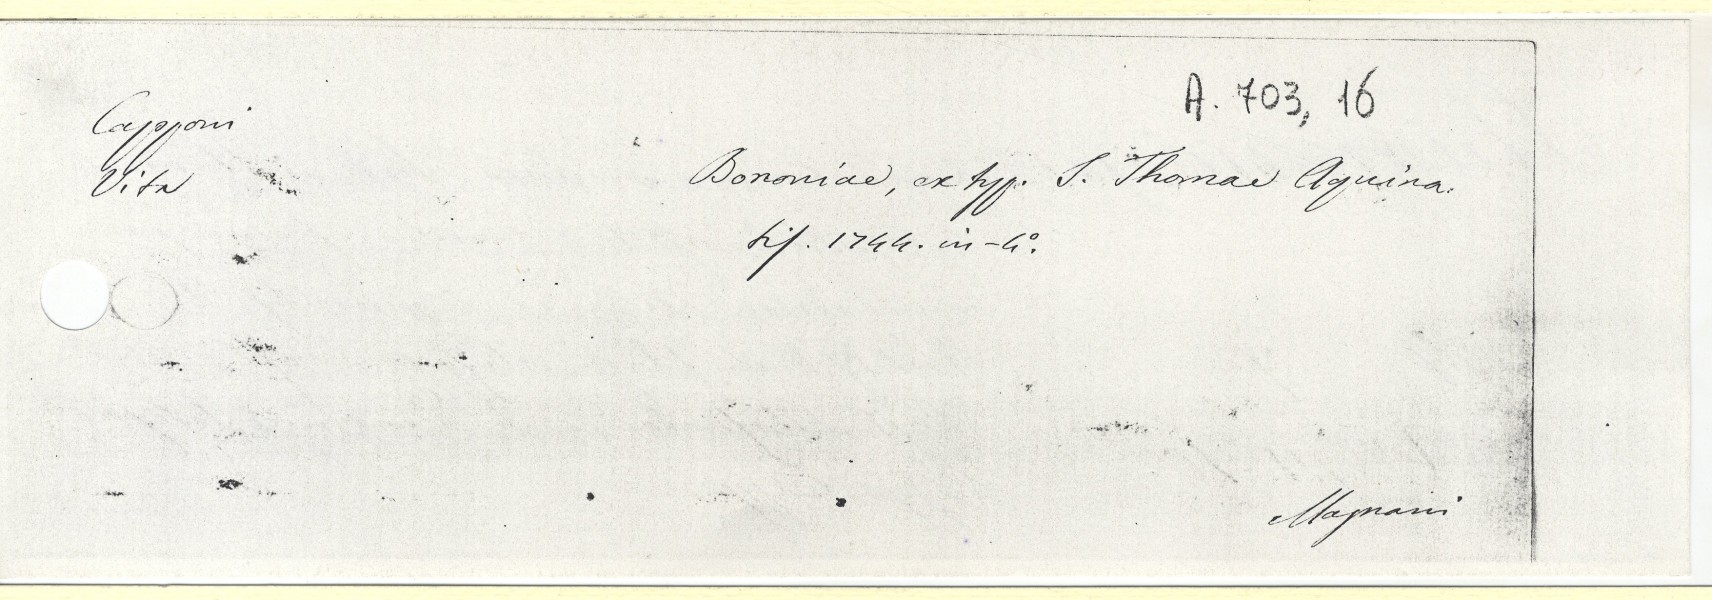 A. 703, 16
Capponi
Vita
Bononiae, ex typ. S. Thomae Aquina.
tis. 1744. in-4°.
Magnani